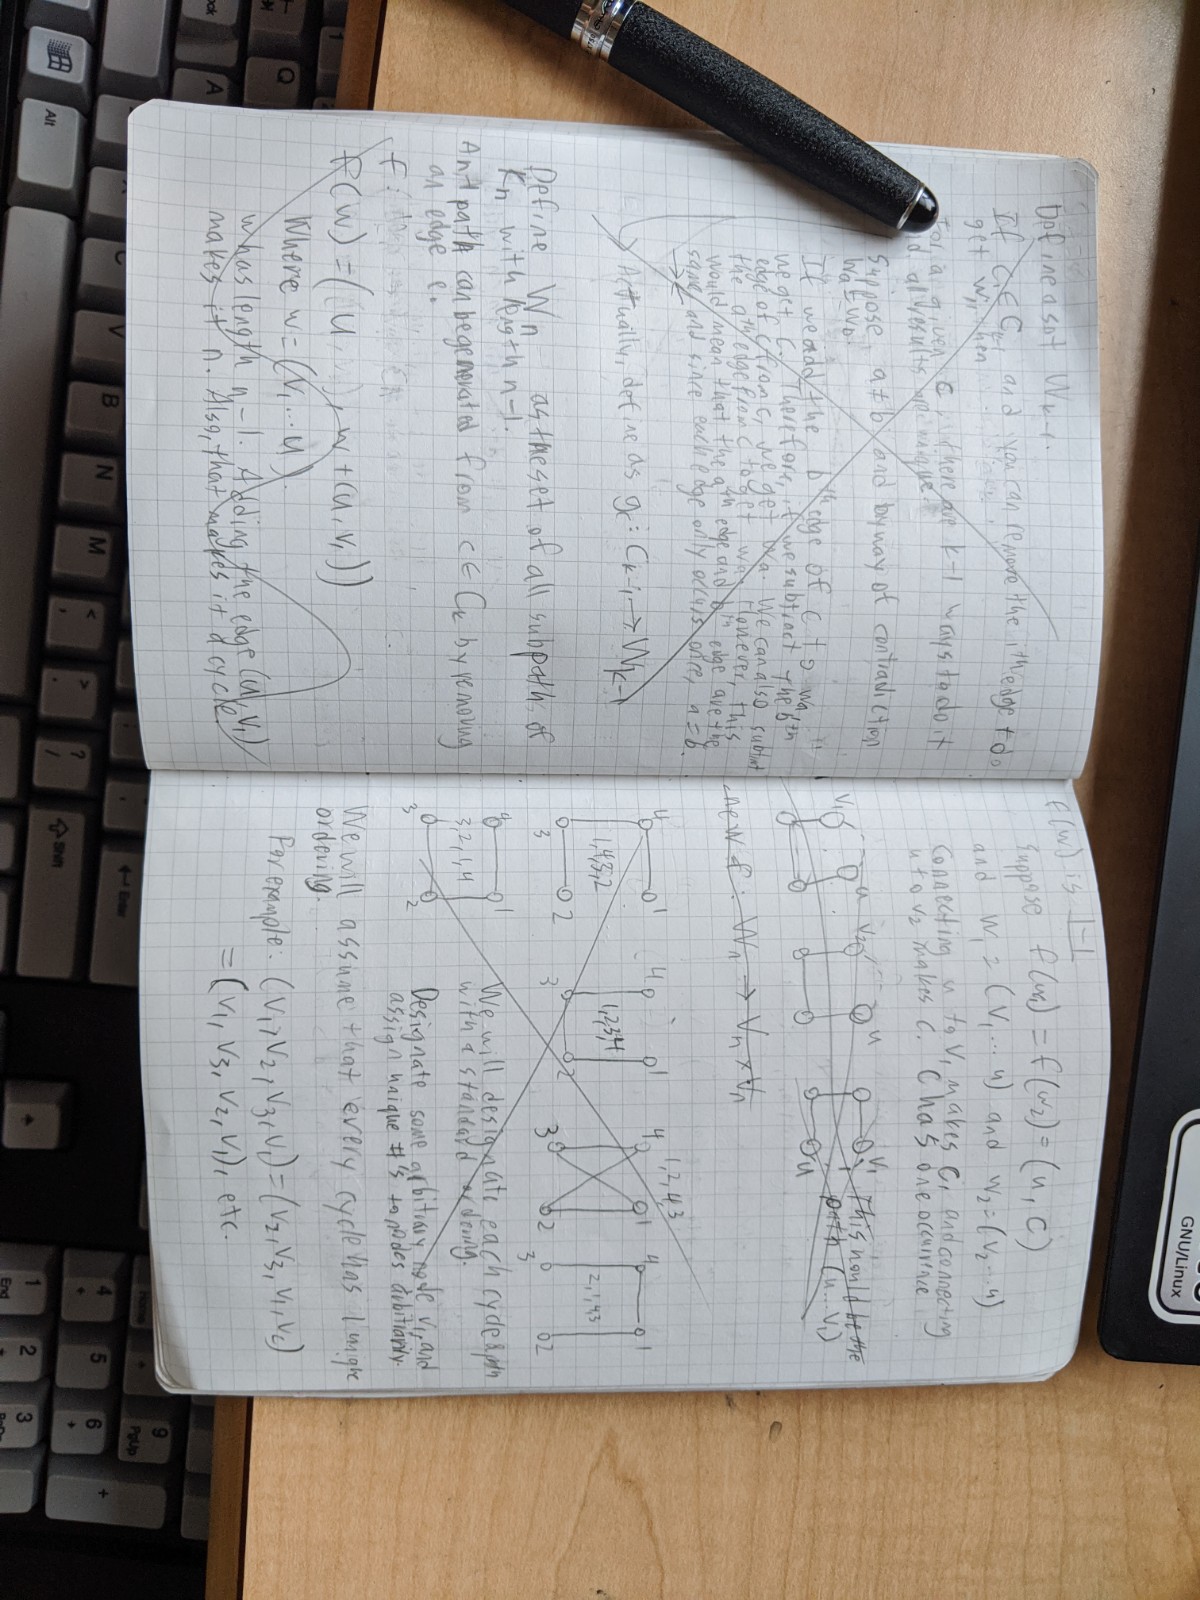 Define a set Wk-1.
If C ∈ Ck-1 and you can remove the ith edge to
get wi, then
For a given c, there are k-1 ways to do it
and all results are unique.
Suppose a ≠ b and by way of contradiction
wa = wb.
If we add the bth edge of C to wa,
we get C. Therefore, if we subtract the bth
edge of C from C, we get wa. We can also subtract
the ath edge from C to get wa. However, this
would mean that the ath edge and bth edge are the
same, and since each edge only occurs once, a = b.
Actually, define as g: Ck-1 → Wk-1
Define Wn as the set of all subpaths of
Kn with length n-1.
Any path can be generated from c ∈ Cn by removing
an edge e.
f:
f(w) = (u, w + (u, v1))
Where w = (v1 ... u)
w has length n-1. Adding the edge (u, v1)
makes it n. Also, that makes it a cycle
f(w) is 1-1
Suppose f(w1) = f(w2) = (u, C)
and w1 = (v1 ... u) and w2 = (v2 ... u)
Connecting u to v1 makes C, and connecting
u to v2 makes C. C has one occurrence
v1 u v2 u v1 u
This would be the
path (u ... v1)
new f: Wn → Vn × Vn
4 1 4 1 4 1 4 1
1,4,3,2 1,2,3,4 1,2,4,3 2,1,4,3
3 2 3 2 3 2 3 2
4 1
3,2,1,4
3 2
We will designate each cycle path
with a standard ordering.
Designate some arbitrary node v1, and
assign unique #'s to nodes arbitrarily.
We will assume that every cycle has 1 unique
ordering.
For example: (v1, v2, v3, v1) = (v2, v3, v1, v2)
= (v1, v3, v2, v1), etc.
GNU/Linux
Alt
Q
A
C
V
B
N
M
<
,
>
.
?
/
Shift
Enter
1
End
2
3
4
5
6
9
PgUp
+